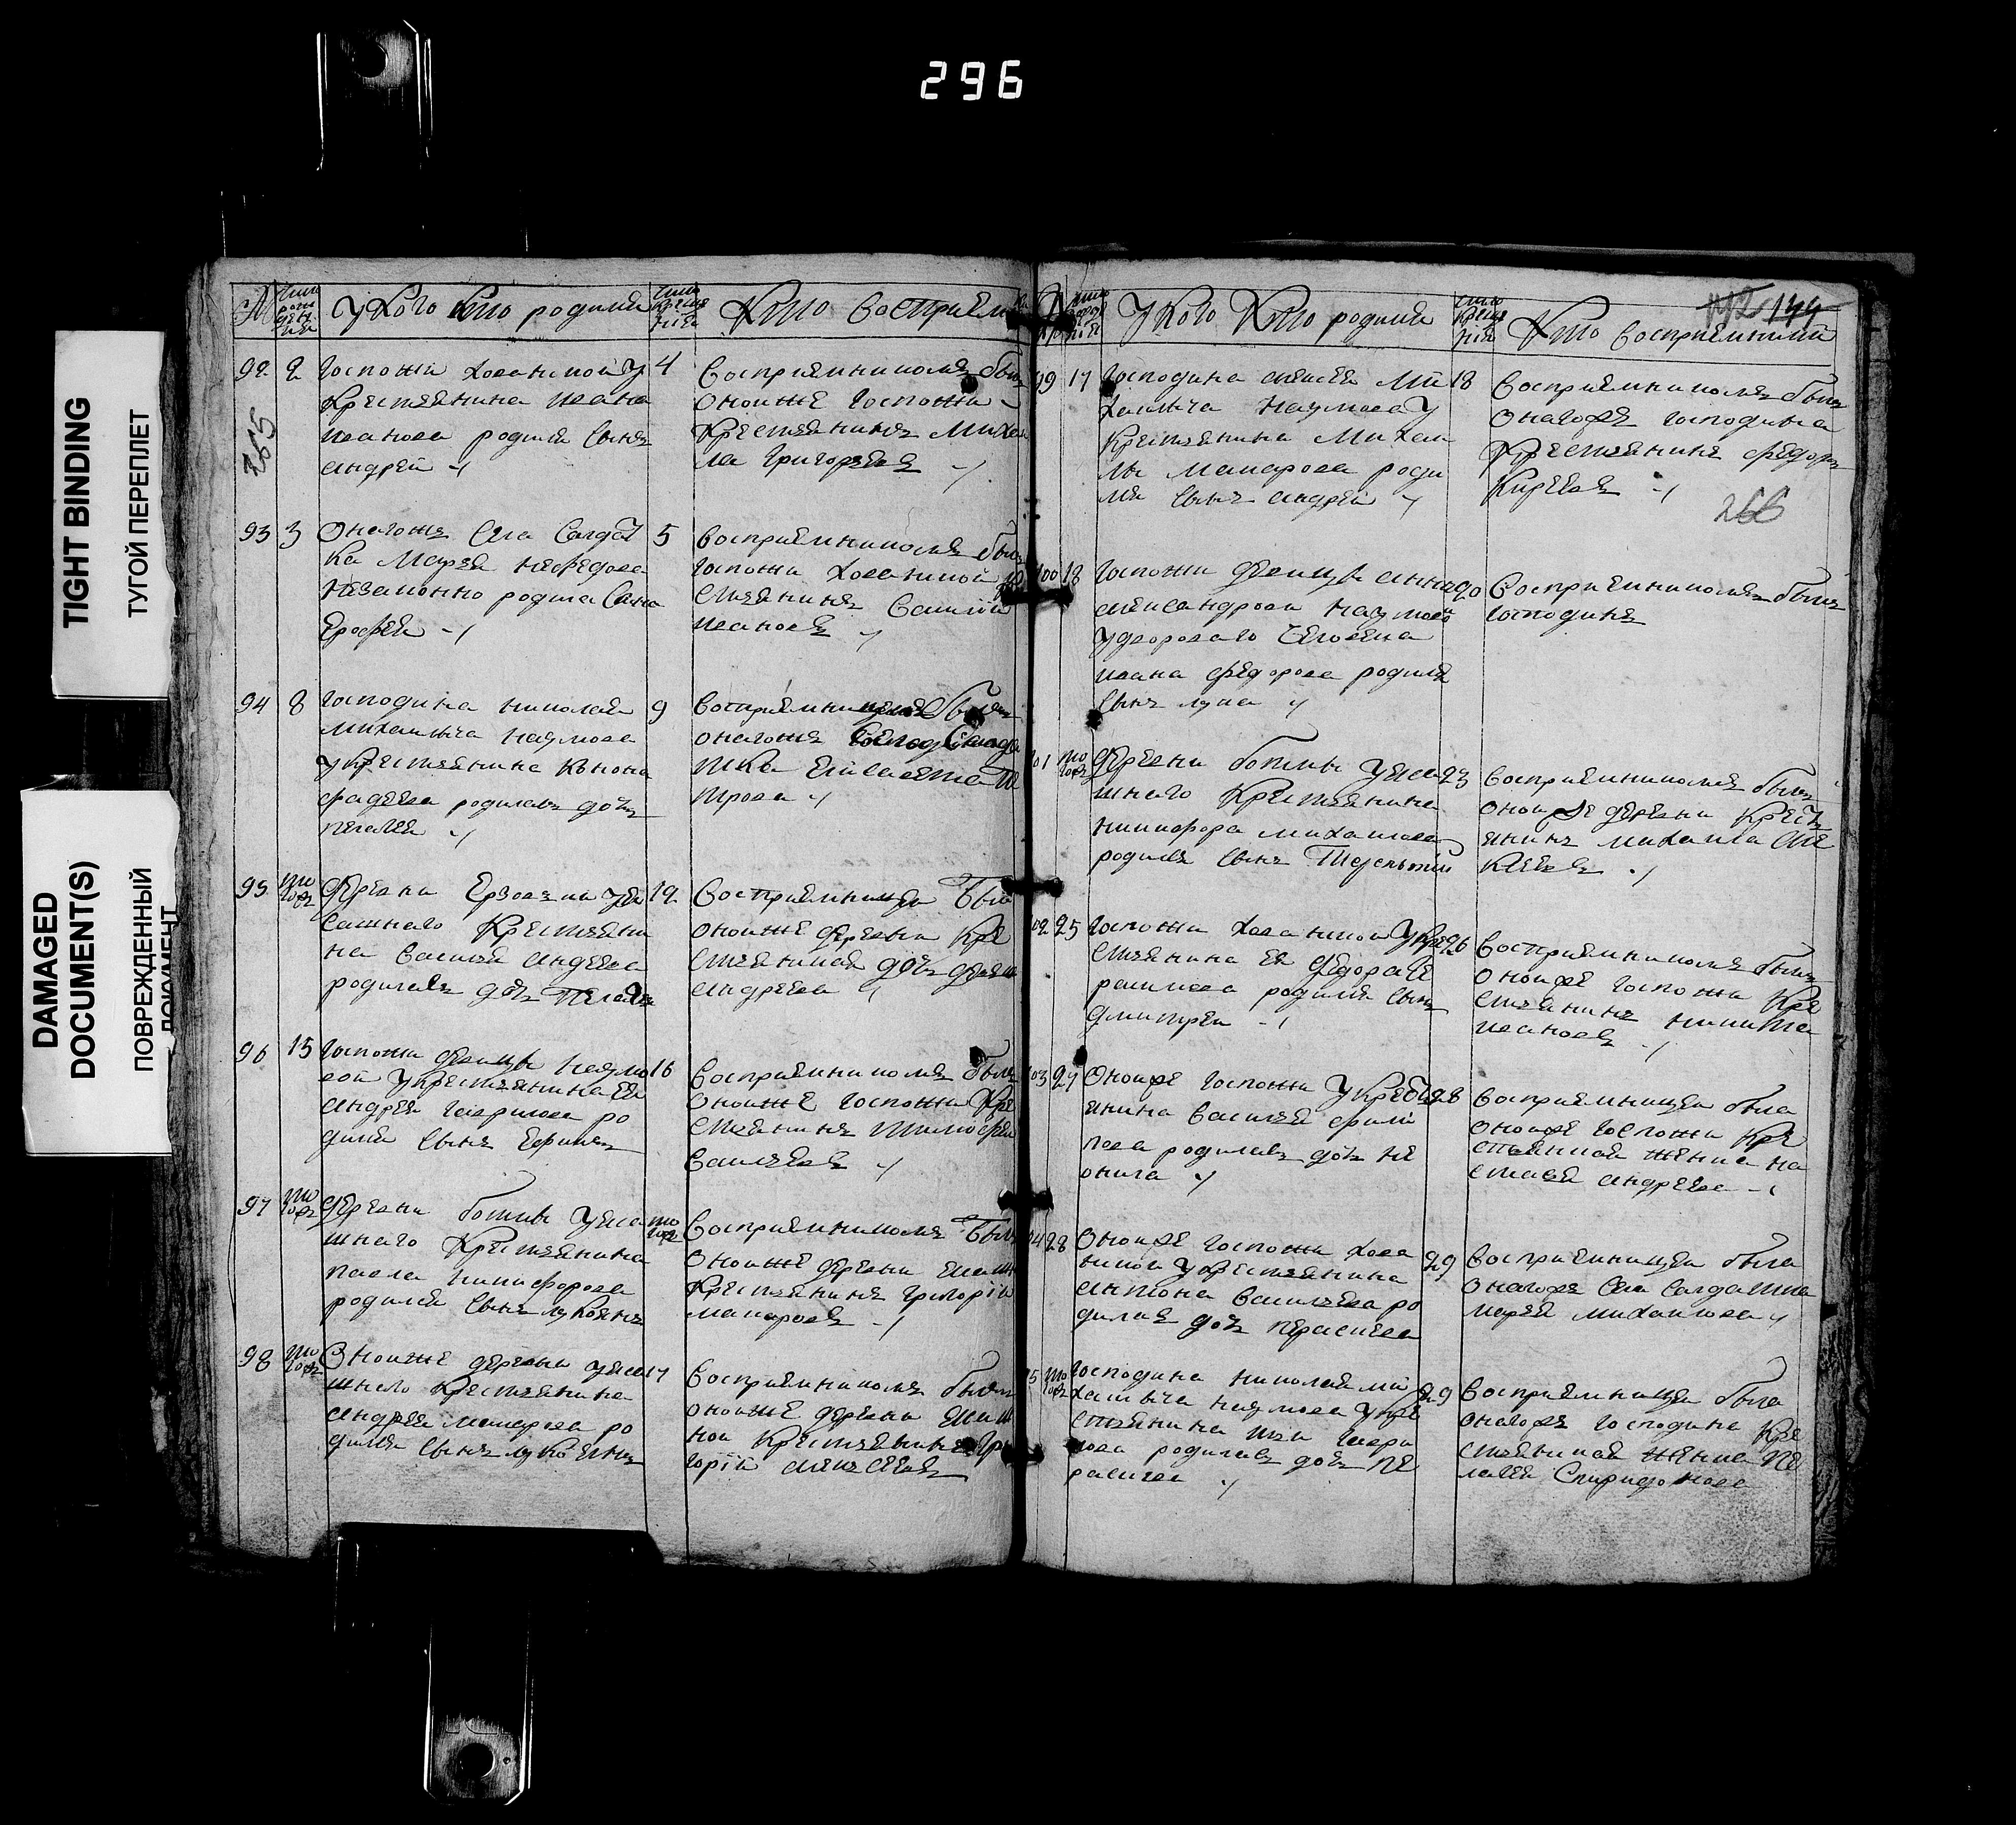 296
TIGHT BINDING
ТУГОЙ ПЕРЕПЛЕТ
DAMAGED
DOCUMENT(S)
ПОВРЕЖДЕННЫЙ
ДОКУМЕНТ
№
число рождения
У кого кто родился
число крещения
Кто восприем
92 2 Госпожи Ховансной у 4
крестьянина Ивана
Иванова родился сынъ
Андрей
265
Восприемникомъ былъ
оной же госпожи
крестьянинъ Михаи
ла Григорьевъ
93 3 Онагожъ села солдат 5
ка Марья Нефедова
незаконно родила сына
Ерофея
Восприемникомъ былъ
госпожи Хованской кре
стьянинъ Василий
Ивановъ
94 8 Господина Николая 9
Михаиловича Наумова
у крестьянина Конона
Фадеева родилась дочь
Пелагея
Восприемницею была
онагожъ солда
тка Елисавета Пе
трова
95 того жъ деревни у яса 12
сашнаго крестьяни
на Василья Андреева
родилась дочь Пелагея
Восприемницею была
оной же деревни кре
стьянская дочь
Андреева
96 15 Госпожи девицы Наумо 16
вой у крестьянина ея
Андрея Гаврилова ро
дился сынъ Ефимъ
Восприемникомъ былъ
оной же госпожи кре
стьянинъ Тимофей
Васильевъ
97 того жъ деревни Ботивъ у яса того жъ
шнаго крестьянина
Павла Никифорова
родился сынъ Лукоянъ
Восприемникомъ былъ
оной же деревни ясаш
крестьянинъ Григорий
Макаровъ
98 того жъ Оной же деревни у яса 17
шнаго крестьянина
Андрея Макарова ро
дился сынъ Лукоянъ
Восприемникомъ былъ
оной же деревни ясаш
ной крестьянинъ Гри
горий Алексеевъ
№
У кого кто родился
число крещения
Кто восприемники
144
99 17 Господина Алексея Ми 18
хаиловича Наумова у
крестьянина Михаи
лы Макарова роди
лся сынъ Андрей
Восприемникомъ былъ
онагожъ господина
крестьянинъ Федоръ
Киреевъ
266
100 18 Госпожи девицы Анны 20
Александровы Наумовой
у двороваго человека
Ивана Федорова родился
сынъ Лука
Восприемникомъ былъ
господинъ
101 того жъ Деревни Ботивъ у яса 23
шнаго крестьянина
Никифора Михаилова
родился сынъ Терентий
Восприемникомъ былъ
оной же деревни крест
янинъ Михаила Але
ксеевъ
102 25 Госпожи Хованской у кре 26
стьянина ея Федора Ге
расимова родился сынъ
Дмитрей
Восприемникомъ былъ
оной же госпожи кре
стьянинъ Никита
Ивановъ
103 27 Оной же госпожи у крест 28
янина Василья Фили
пова родилась дочь Не
онила
Восприемницею была
оной же госпожи кре
стьянская женка На
стасья Андреева
104 28 Оной же госпожи Хова 29
нской у крестьянина
Антона Васильева ро
дилась дочь Парасковея
Восприемницею была
онагожъ села солдатка
Марья Михаилова
105 того жъ Господина Николая Ми 29
хаиловича Наумова у кре
стьянина Гаври
лова родилась дочь Па
расковея
Восприемницею была
онагожъ господина кре
стьянская женка Пе
лагея Спиридонова